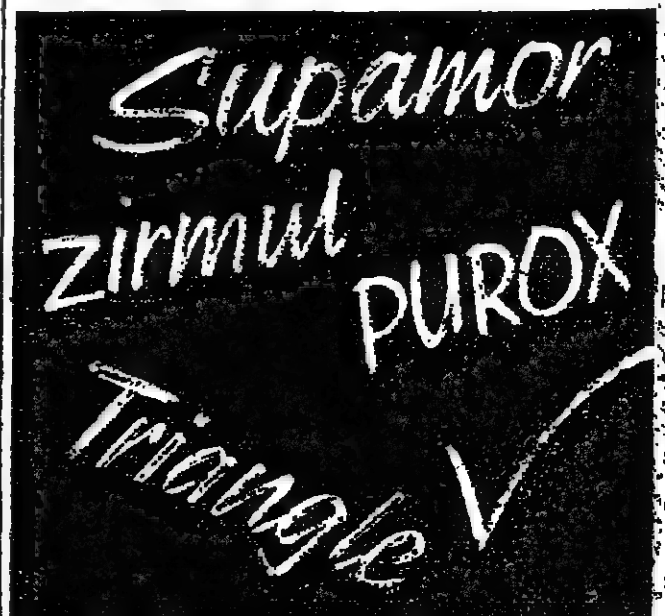 Supamor
zirmul
PUROX
Triangle